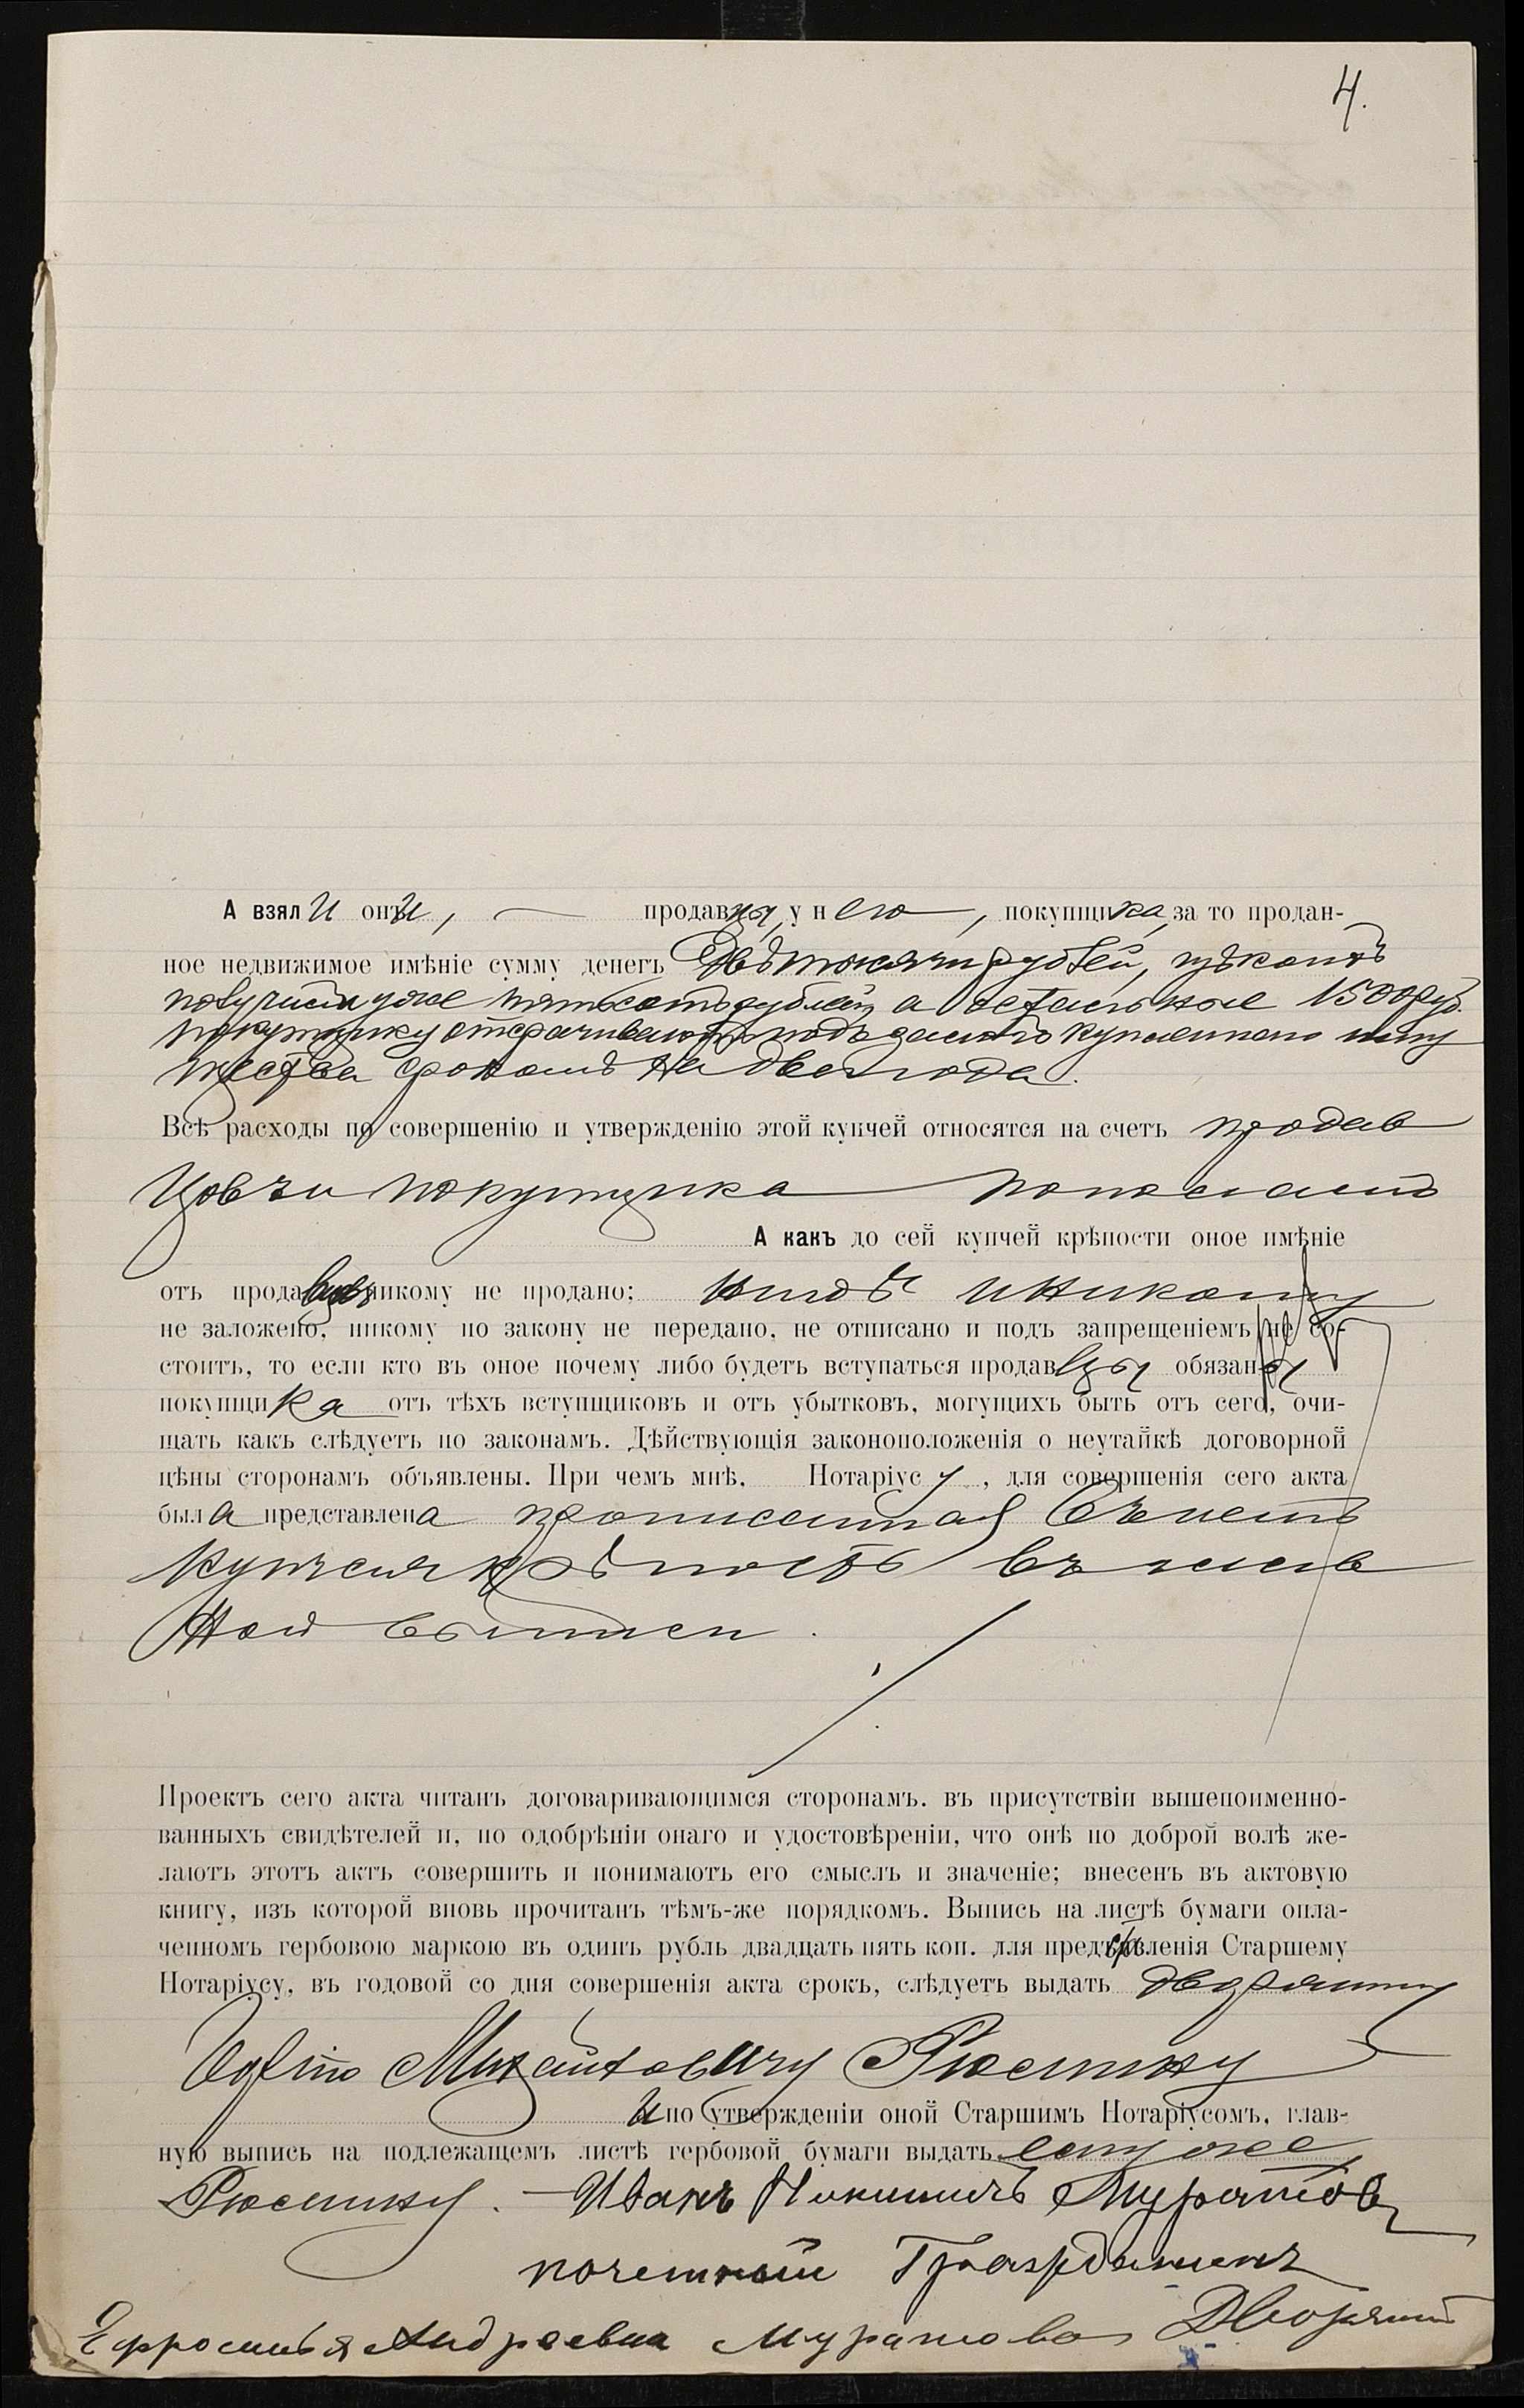 4.
А взяли они, — продавцы, у него, покупщика, за то продан-
ное недвижимое имѣніе сумму денегъ Двѣ тысячи рублей, изъ коихъ
получили уже пятьсотъ рублей, а остальные 1500 руб.
покупщику отсрачиваютъ подъ залогъ купленнаго иму
щества срокомъ на два года.
Всѣ расходы по совершенію и утвержденію этой купчей относятся на счетъ продав
цовъ и покупщика пополамъ
А какъ до сей купчей крѣпости оное имѣніе
отъ продавцовъ никому не продано; нигдѣ и никому
не заложено, никому по закону не передано, не отписано и подъ запрещеніемъ не со-
стоитъ, то если кто въ оное почему либо будетъ вступаться продавцы обязаны
покупщика отъ тѣхъ вступщиковъ и отъ убытковъ, могущихъ быть отъ сего, очи-
щать какъ слѣдуетъ по законамъ. Дѣйствующія законоположенія о неутайкѣ договорной
цѣны сторонамъ объявлены. При чемъ мнѣ, Нотаріусу, для совершенія сего акта
была представлена прописанная въ нёмъ
купчая крѣпость въ глав
ной выписи.
Проектъ сего акта читанъ договаривающимся сторонамъ, въ присутствіи вышепоименно-
ванныхъ свидѣтелей и, по одобрѣніи онаго и удостовѣреніи, что онѣ по доброй волѣ же-
лаютъ этотъ актъ совершить и понимаютъ его смыслъ и значеніе; внесенъ въ актовую
книгу, изъ которой вновь прочитанъ тѣмъ-же порядкомъ. Выпись на листѣ бумаги опла-
ченномъ гербовою маркою въ одинъ рубль двадцать пять коп. для представленія Старшему
Нотаріусу, въ годовой со дня совершенія акта срокъ, слѣдуетъ выдать дворянину
Михайловичу
И по утвержденіи оной Старшимъ Нотаріусомъ, глав-
ную выпись на подлежащемъ листѣ гербовой бумаги выдать ему же
— Иванъ Никитичъ Муратовъ
почетный Гражданинъ
Ефросинья Андреевна Муратова Дворянин